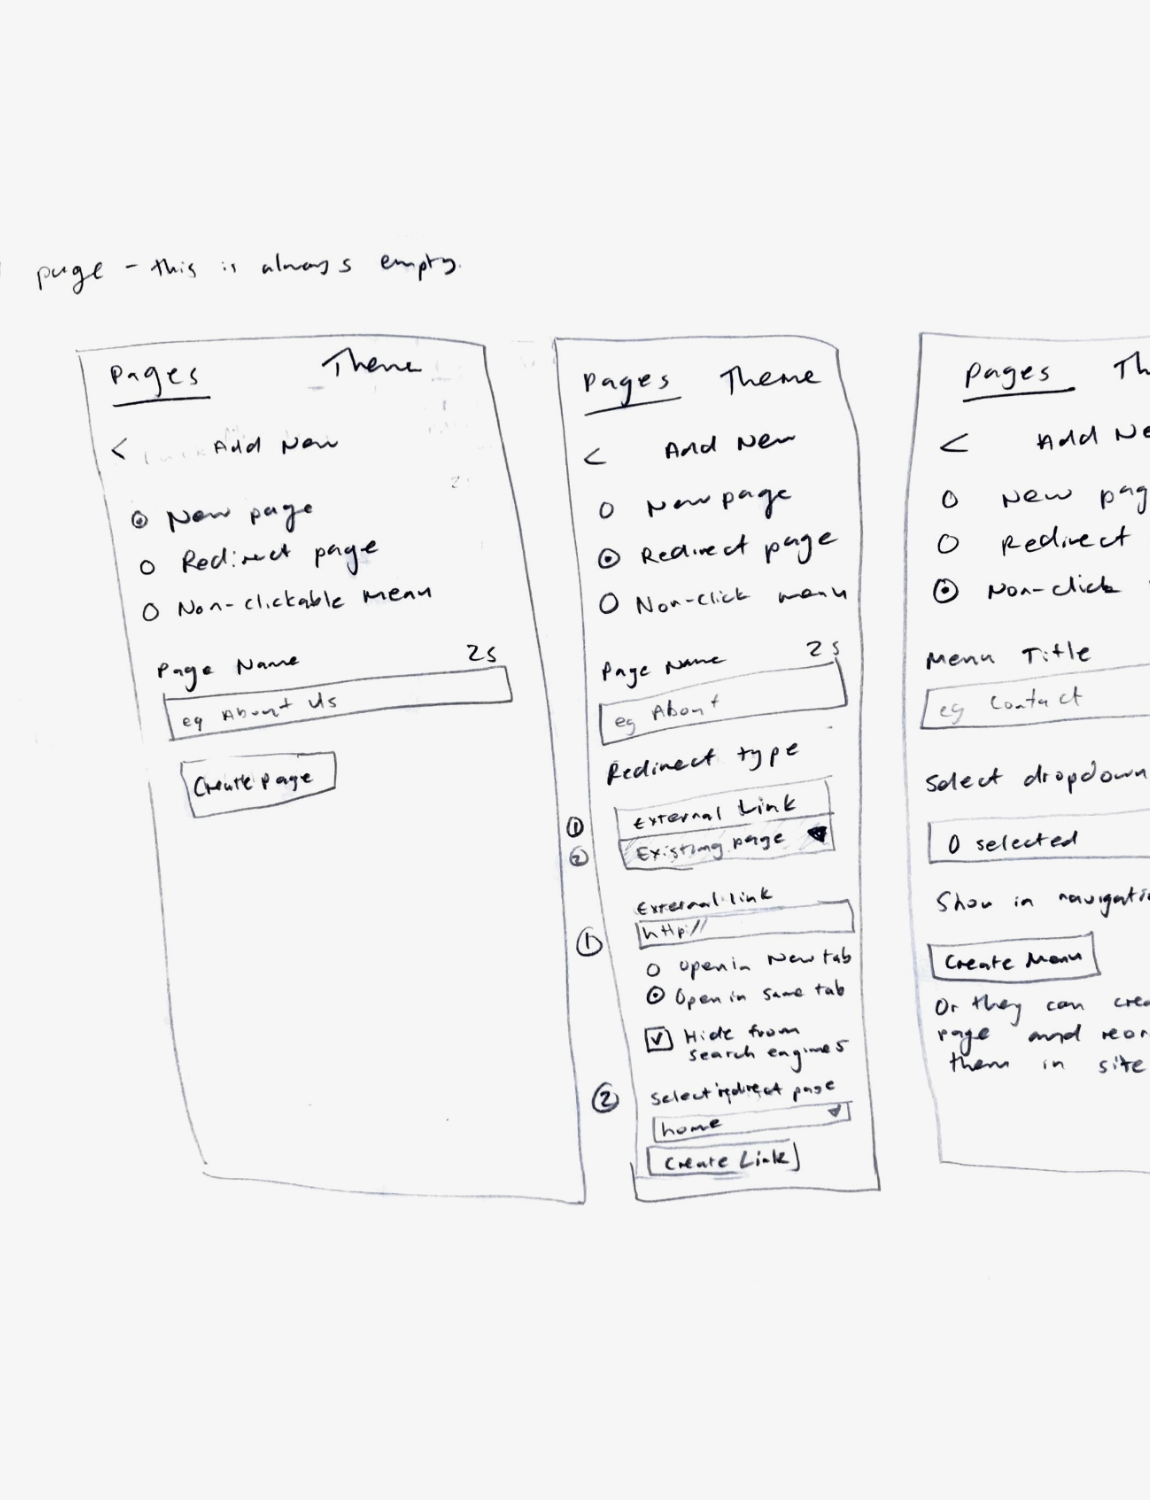 page - this is always empty.
Pages Theme
< Add New
New page
Redirect page
Non-clickable menu
Page Name 25
eg About Us
Create page
Pages Theme
< Add New
New page
Redirect page
Non-click menu
Page Name 25
eg About
Redirect type
① External Link
② Existing page
External link
① http://
Open in New tab
Open in same tab
Hide from
search engines
② Select redirect page
home
Create Link
Pages Th
< Add Ne
New pag
Redirect
Non-click
Menu Title
eg Contact
Select dropdown
0 selected
Show in navigatio
Create Menu
Or they can crea
page and reor
them in site